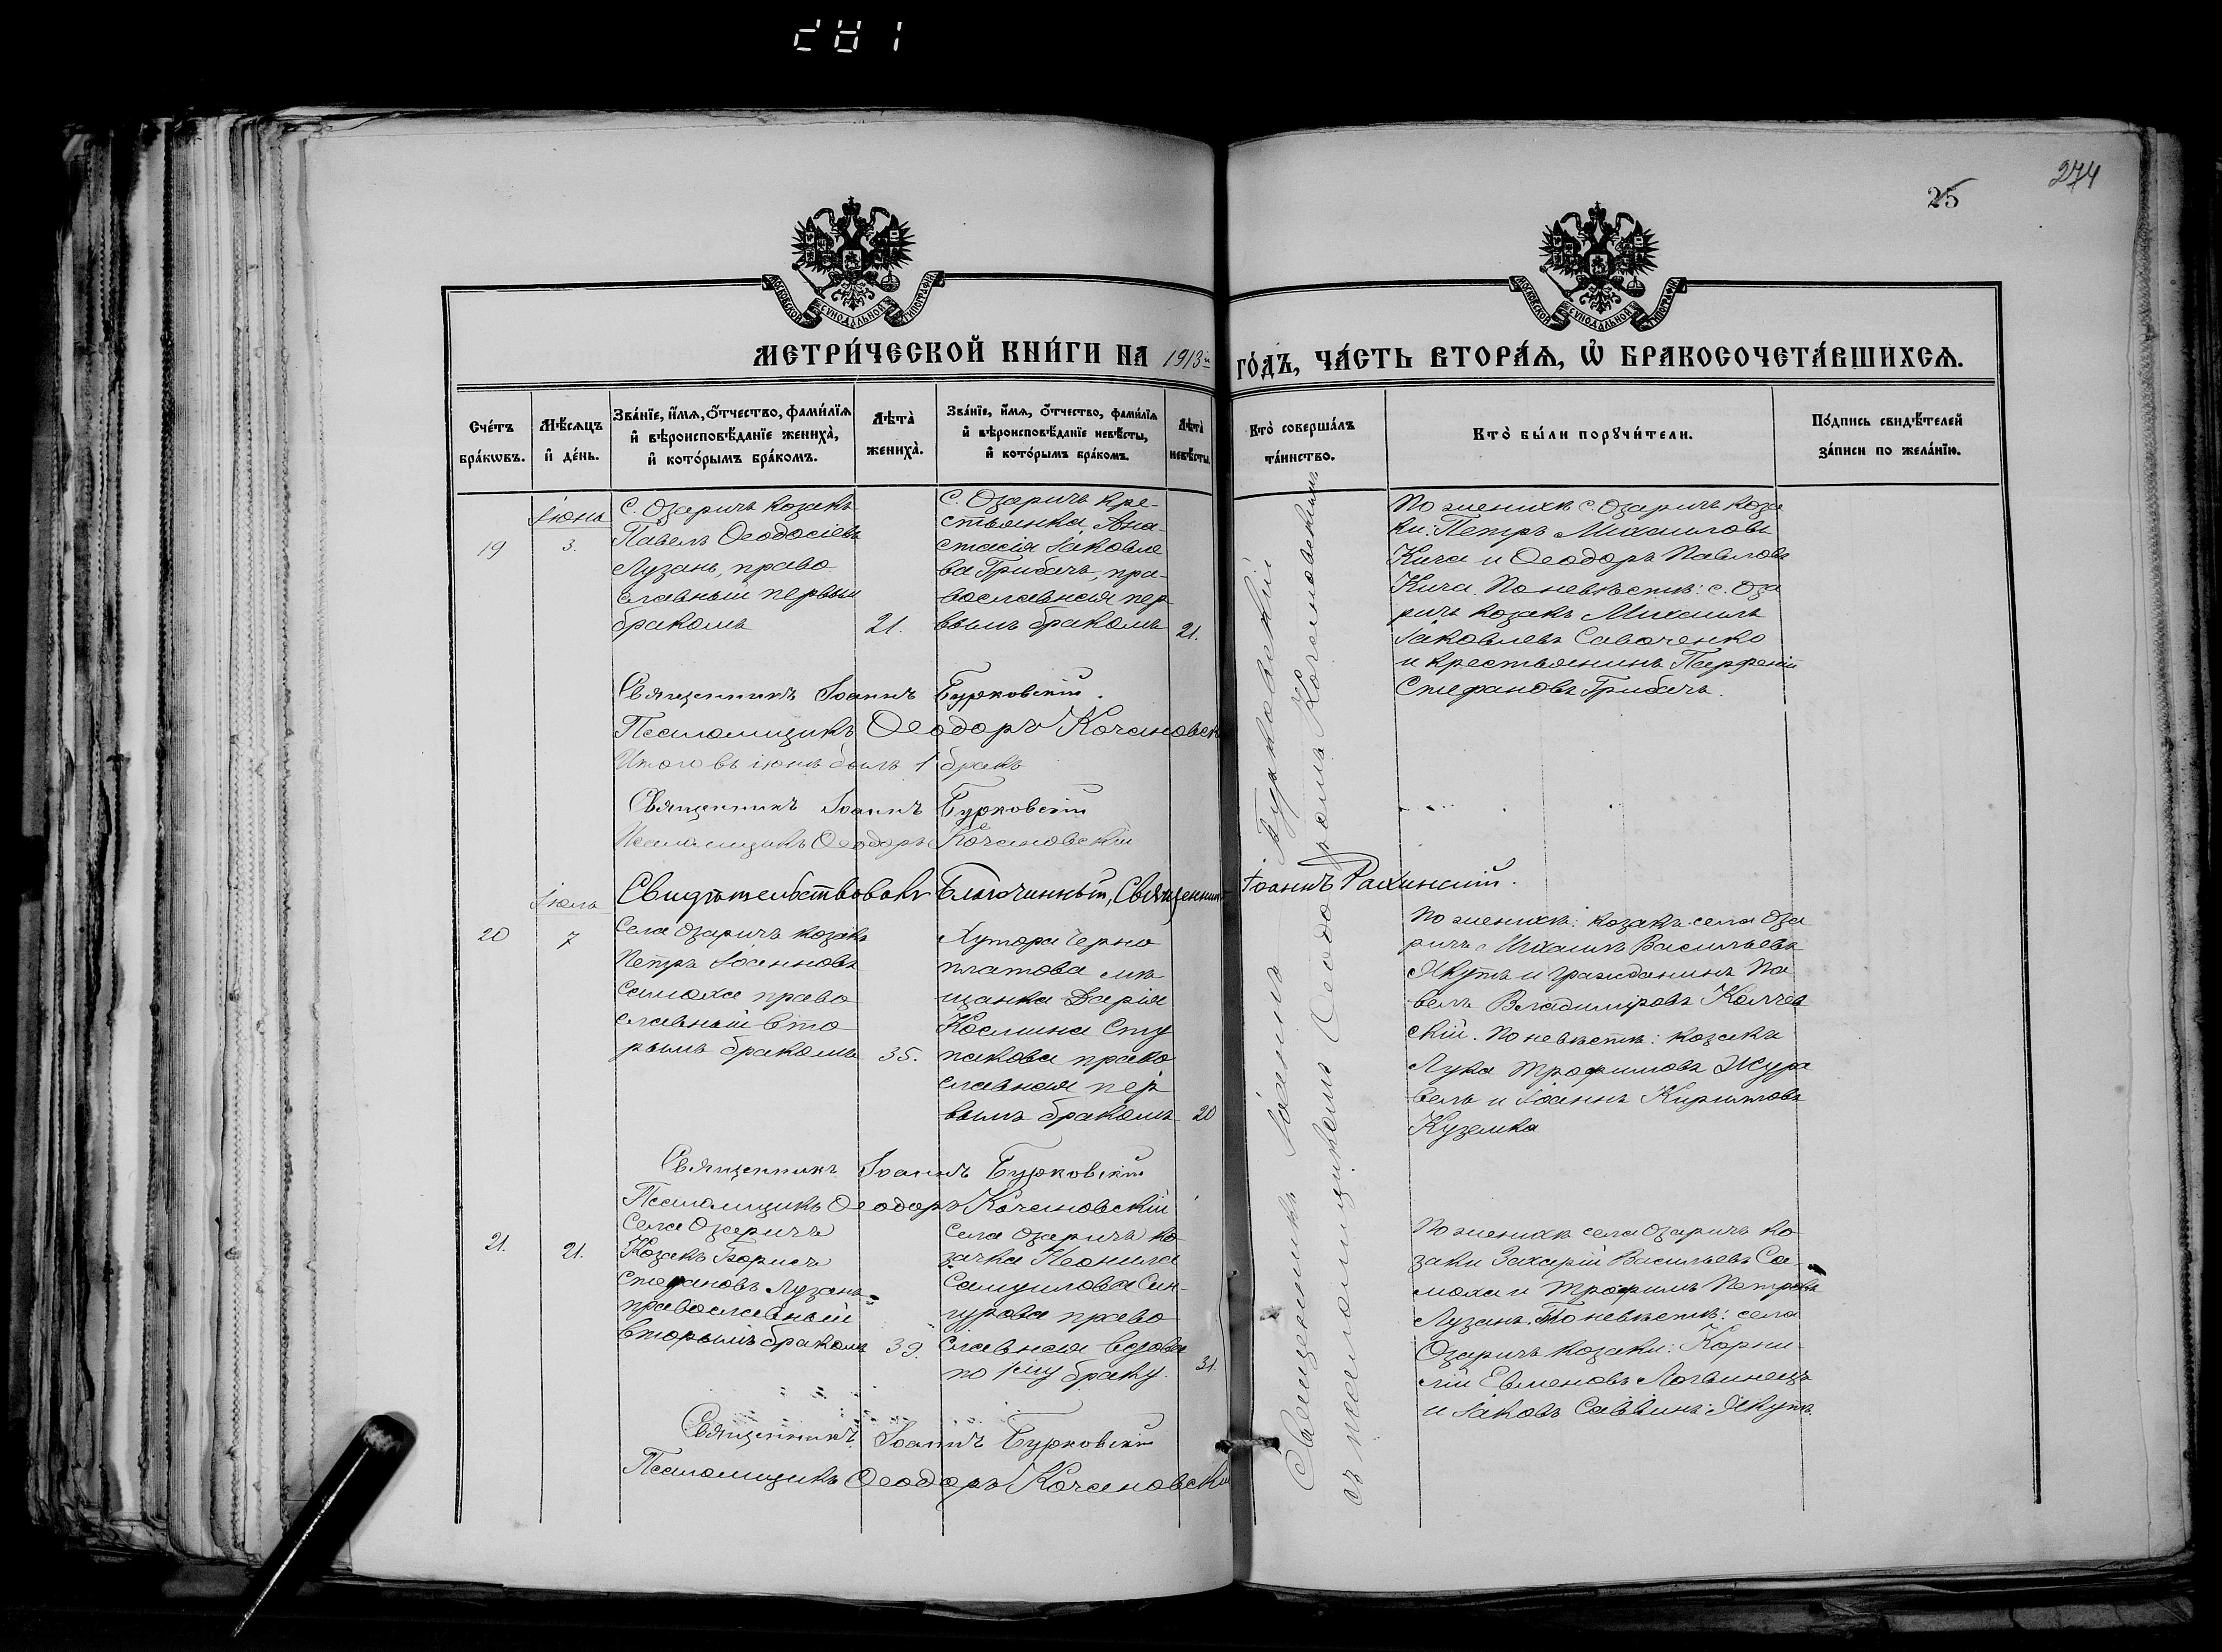 274
25
МОСКОВСКОЙ СѴНОДАЛЬНОЙ ТИПОГРАФІИ
МОСКОВСКОЙ СѴНОДАЛЬНОЙ ТИПОГРАФІИ
МЕТРИ́ЧЕСКОЙ КНИ́ГИ НА 1913й ГО́ДЪ, ЧА́СТЬ ВТОРА́Ѧ, Ѡ҆ БРАКОСОЧЕТА́ВШИХСѦ.
Сче́тъ
бра́кѡвъ.
Мѣ́сѧцъ
и҆ де́нь.
Зва́нїе, и҆́мѧ, ѻ҆́тчество, фами́лїѧ
и҆ вѣроисповѣ́данїе жениха̀,
и҆ кото́рымъ бра́комъ.
Лѣта̀
жениха̀.
Зва́нїе, и҆́мѧ, ѻ҆́тчество, фами́лїѧ
и҆ вѣроисповѣ́данїе невѣ́сты,
и҆ кото́рымъ бра́комъ.
Лѣта̀
невѣ́сты.
Кто̀ соверша́лъ
та́инство.
Кто̀ бы́ли порꙋчи́тели.
По́дпись свидѣ́телей
за́писи по жела́нїю.
19
Іюнь
3.
С. Озаричъ козакъ
Павелъ Ѳеодосіевъ
Лузанъ, право
славный первым
бракомъ
21.
С. Озаричъ кре-
стьянка Ана-
стасія Іаковле
ва Грибачъ, пра-
вославная пер
вымъ бракомъ
21.
По женихѣ с. Озаричъ коза
ки: Петръ Михаиловъ
Кича и Ѳеодоръ Павловъ
Кича. По невѣстѣ: с. Оза
ричъ козакъ Михаилъ
Іаковлевъ Савоченко
и крестьянинъ Парфеній
Стефановъ Грибачъ.
Священникъ Іоаннъ Бурковскій.
Псаломщикъ Ѳеодоръ Кочановск
Итого въ іюнѣ былъ 1 бракъ
Священникъ Іоаннъ Бурковскій
Псаломщикъ Ѳеодоръ Кочановскій
Свидѣтельствовалъ Благочинный, Священникъ Іоаннъ
20
Іюль
7
Села Озаричъ козакъ
Петръ Іоанновъ
Самоха право
славный вто
рымъ бракомъ
35.
Хутора Черно
платова мѣ
щанка Дарія
Космина Сту
пакова право
славная пер
вымъ бракомъ
20
По женихѣ: козакъ села Оза
ричъ Михаилъ Васильевъ
Якутъ и гражданинъ Па
велъ Владиміровъ Колчев
скій. По невѣстѣ: козакъ
Лука Трофимовъ Жура
вель и Іоаннъ Кирилловъ
Куземка
Священникъ Іоаннъ Бурковскій
Псаломщикъ Ѳеодоръ Кочановскій
21.
21.
Села Озаричъ
Козакъ Борисъ
Стефановъ Лузанъ
православный
вторымъ бракомъ
39.
Села Озаричъ ко
зачка Неонила
Самуилова Син-
гурова право
славная вдова
по 1му браку.
31.
По женихѣ села Озаричъ ко
заки Захарій Васильевъ Са-
моха и Трофимъ Петровъ
Лузанъ. По невѣстѣ: села
Озаричъ козаки: Корни-
лій Евменовъ Логвинецъ
и Іаковъ Саввинъ Якутъ.
Священникъ Іоаннъ Бурковскій
Псаломщикъ Ѳеодоръ Кочановскій
Священникъ Іоаннъ Бурковскій
съ псаломщикомъ Ѳеодоромъ Кочановскимъ